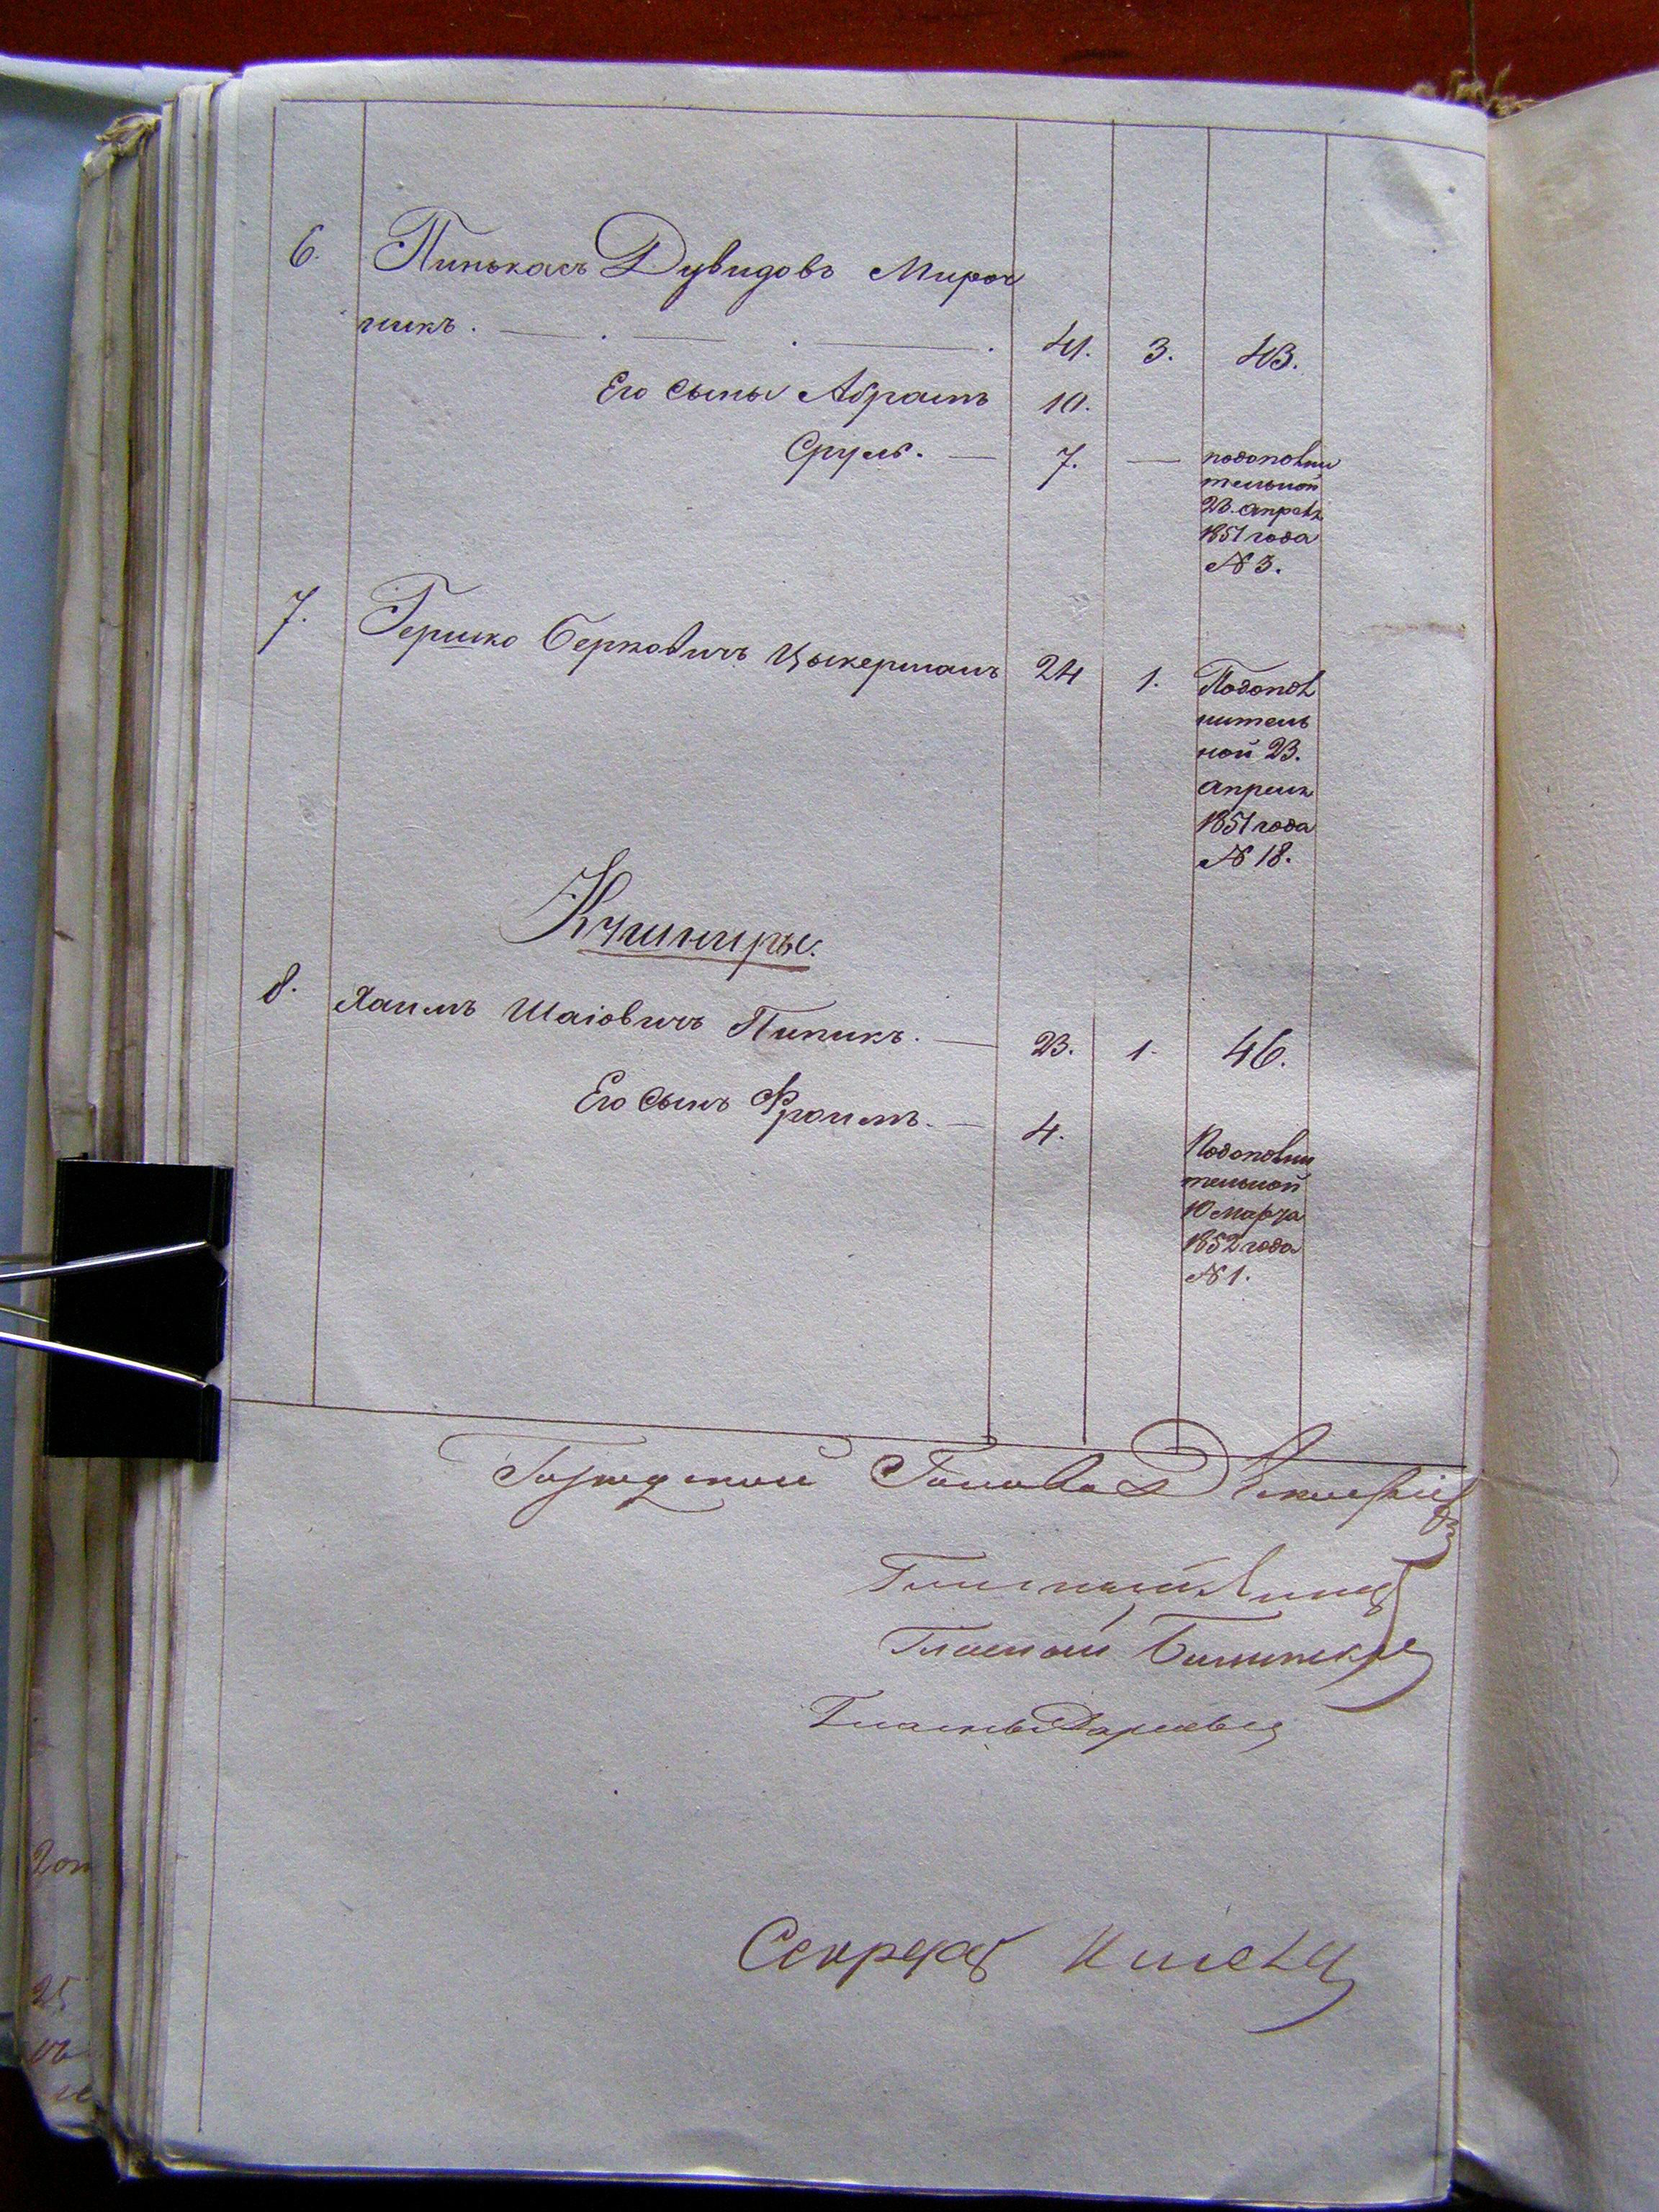 6. Пинькасъ Дувидовъ Мироч
никъ. 41. 3. 43.
Его сыны Абрамъ 10.
Сруль. — 7. — по дополни
тельной
23. апреля
1851 года
№ 3.
7. Гершко Берковичъ Цыкерманъ 24 1. По допол
нитель
ной 23.
апреля
1851 года
№ 18.
Кушниры.
8. Хаимъ Шаіовичъ Пипикъ. — 23. 1. 46.
Его сынъ Фроимъ. — 4.
По дополни
тельной
10 марта
1852 года
№ 1.
Городской Голова
Гласный
Гласный
Гласный
Секретарь